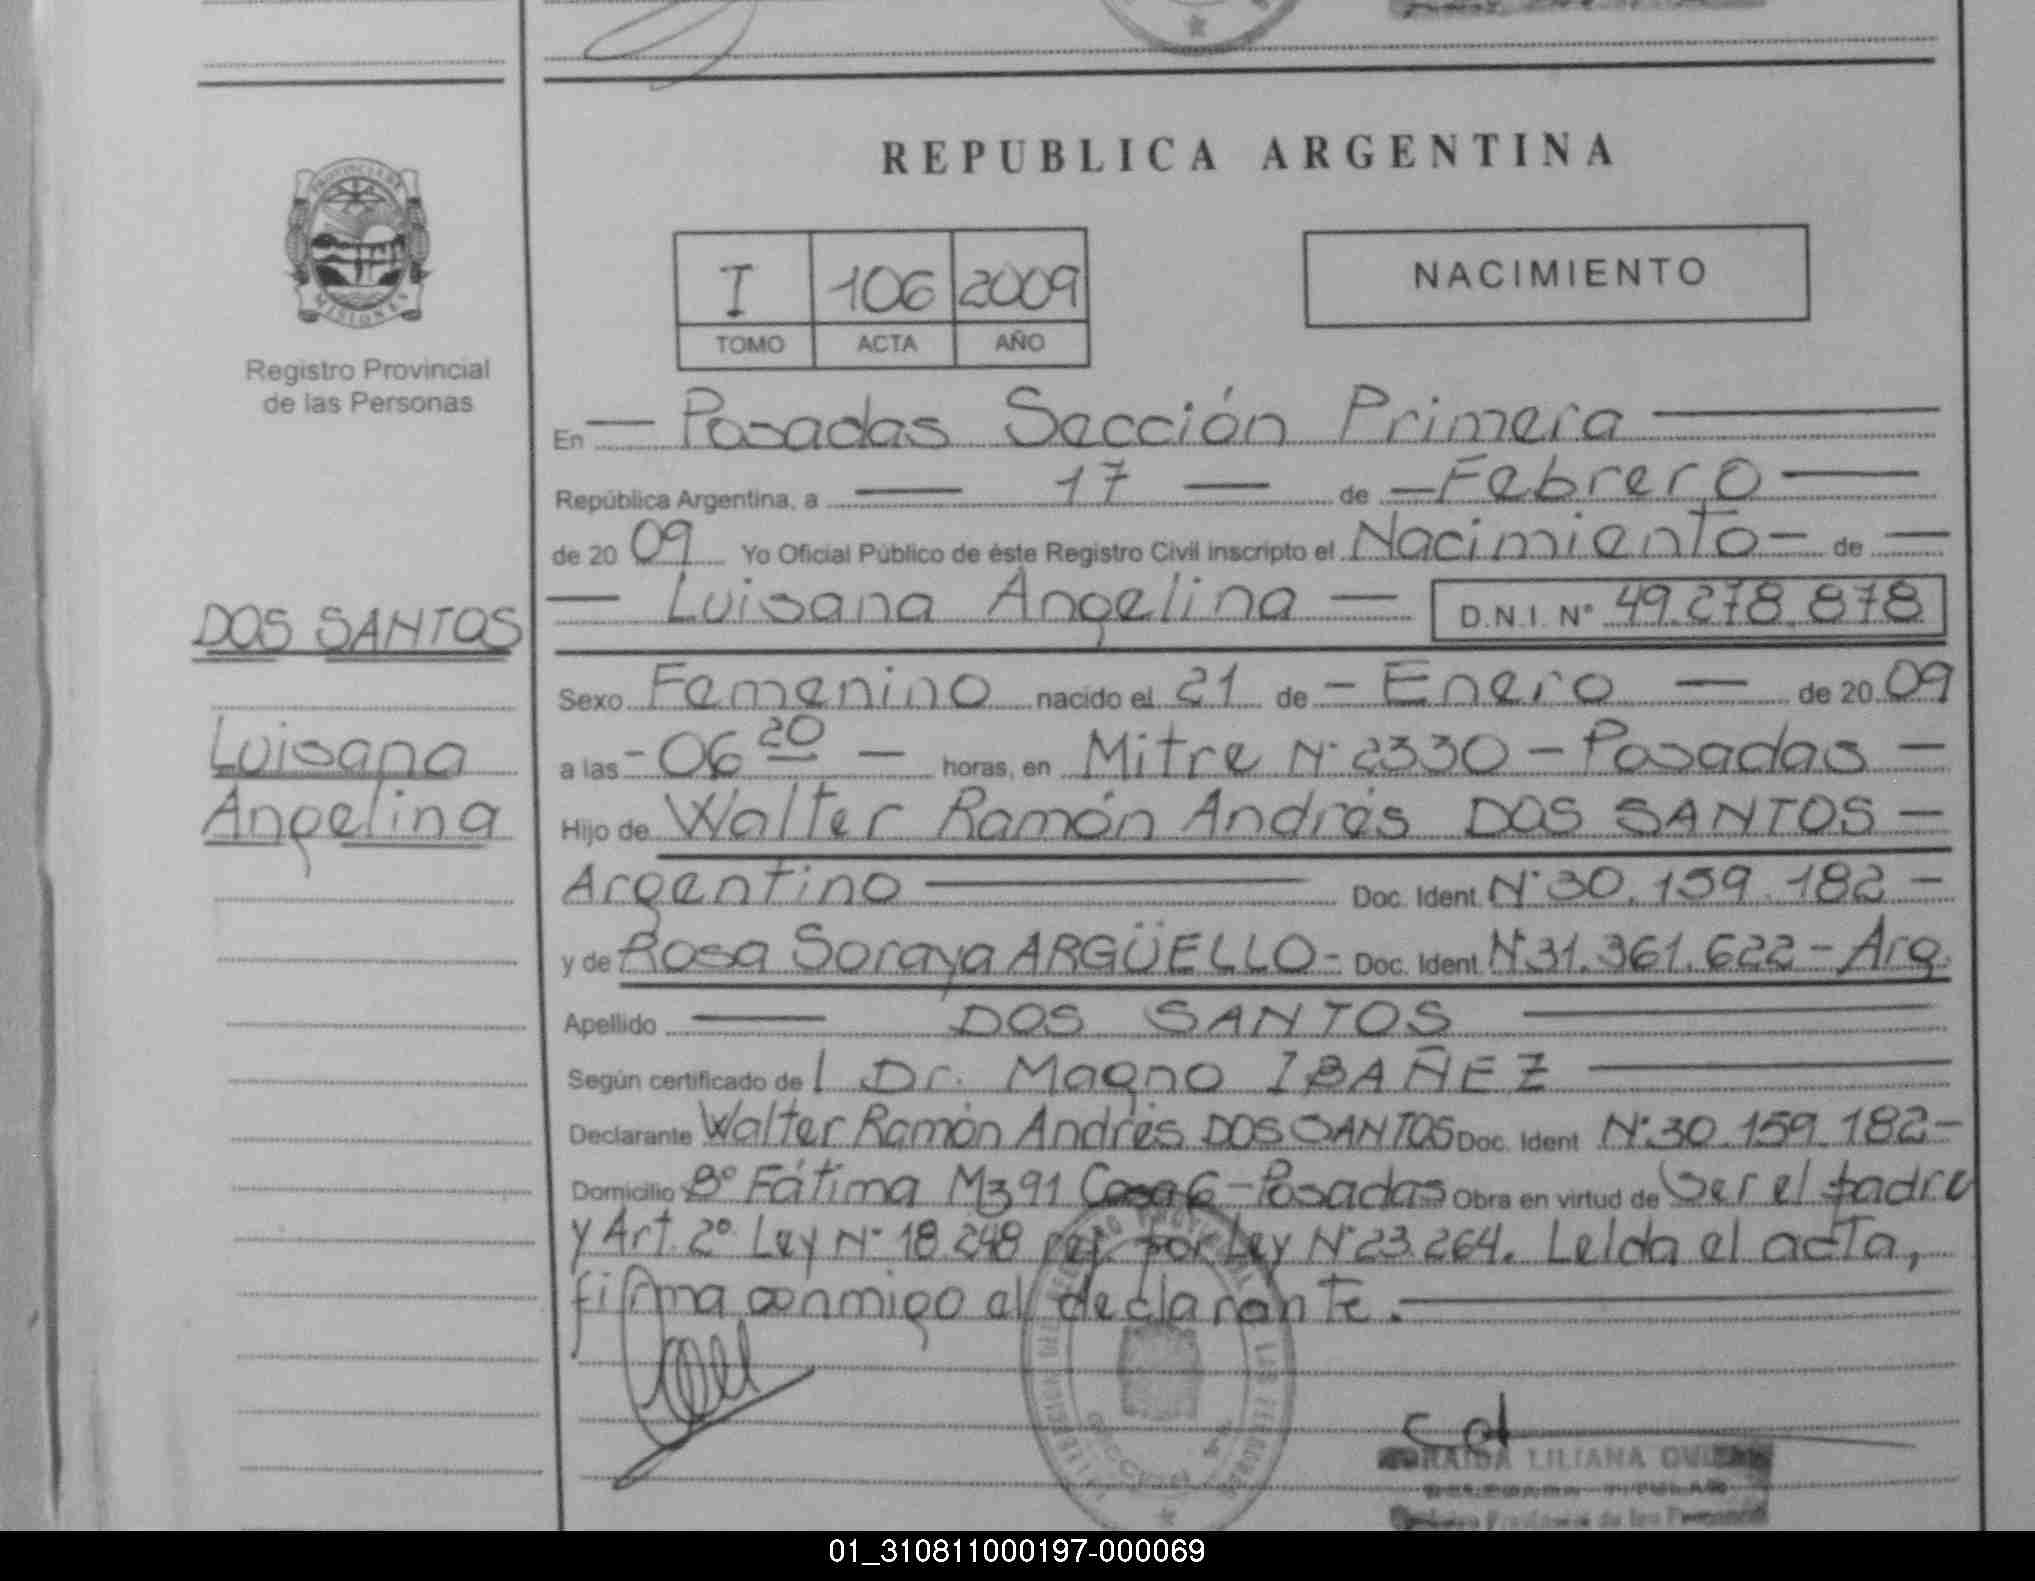 REPUBLICA ARGENTINA
PROVINCIA DE
MISIONES
Registro Provincial
de las Personas
I 106 2009
TOMO ACTA AÑO
NACIMIENTO
En Posadas Sección Primera
República Argentina, a 17 de Febrero
de 20 09 Yo Oficial Público de éste Registro Civil inscripto el Nacimiento de
Luisana Angelina D.N.I. Nº 49.278.878
DOS SANTOS
Luisana
Angelina
Sexo Femenino nacido el 21 de Enero de 20 09
a las 06 20 horas, en Mitre Nº 2330 - Posadas
Hijo de Walter Ramón Andrés DOS SANTOS
Argentino Doc. Ident. Nº 30.159.182
y de Rosa Soraya ARGÜELLO - Doc. Ident. Nº 31.361.622 - Arg.
Apellido DOS SANTOS
Según certificado de l Dr. Magno IBAÑEZ
Declarante Walter Ramón Andrés DOS SANTOS Doc. Ident. Nº 30.159.182
Domicilio Bº Fátima Mz 91 Casa 6 - Posadas Obra en virtud de Ser el padre
y Art. 2º Ley Nº 18.248 ref. por Ley Nº 23.264. Leída el acta,
firma conmigo el declarante.
LILIANA
Provincial de las Personas
01_310811000197-000069